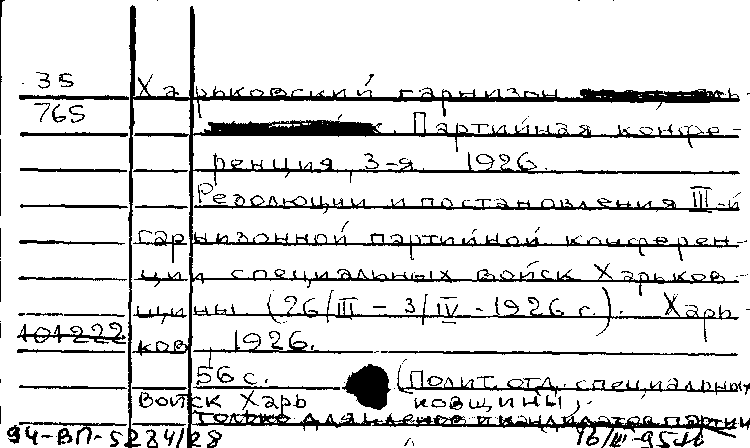 35
765
Харьковский гарнизон
Партийная конфе-
ренция, 3-я. 1926.
Резолюции и постановления III-й
гарнизонной партийной конферен-
ции специальных войск Харьков-
щины (26/III - 3/IV - 1926 г.). Харь-
101222
ков, 1926.
56 с. (Полит. отд. специальных
войск Харьковщины).
только для членов и кандидатов партии
94-ВП-5284/28